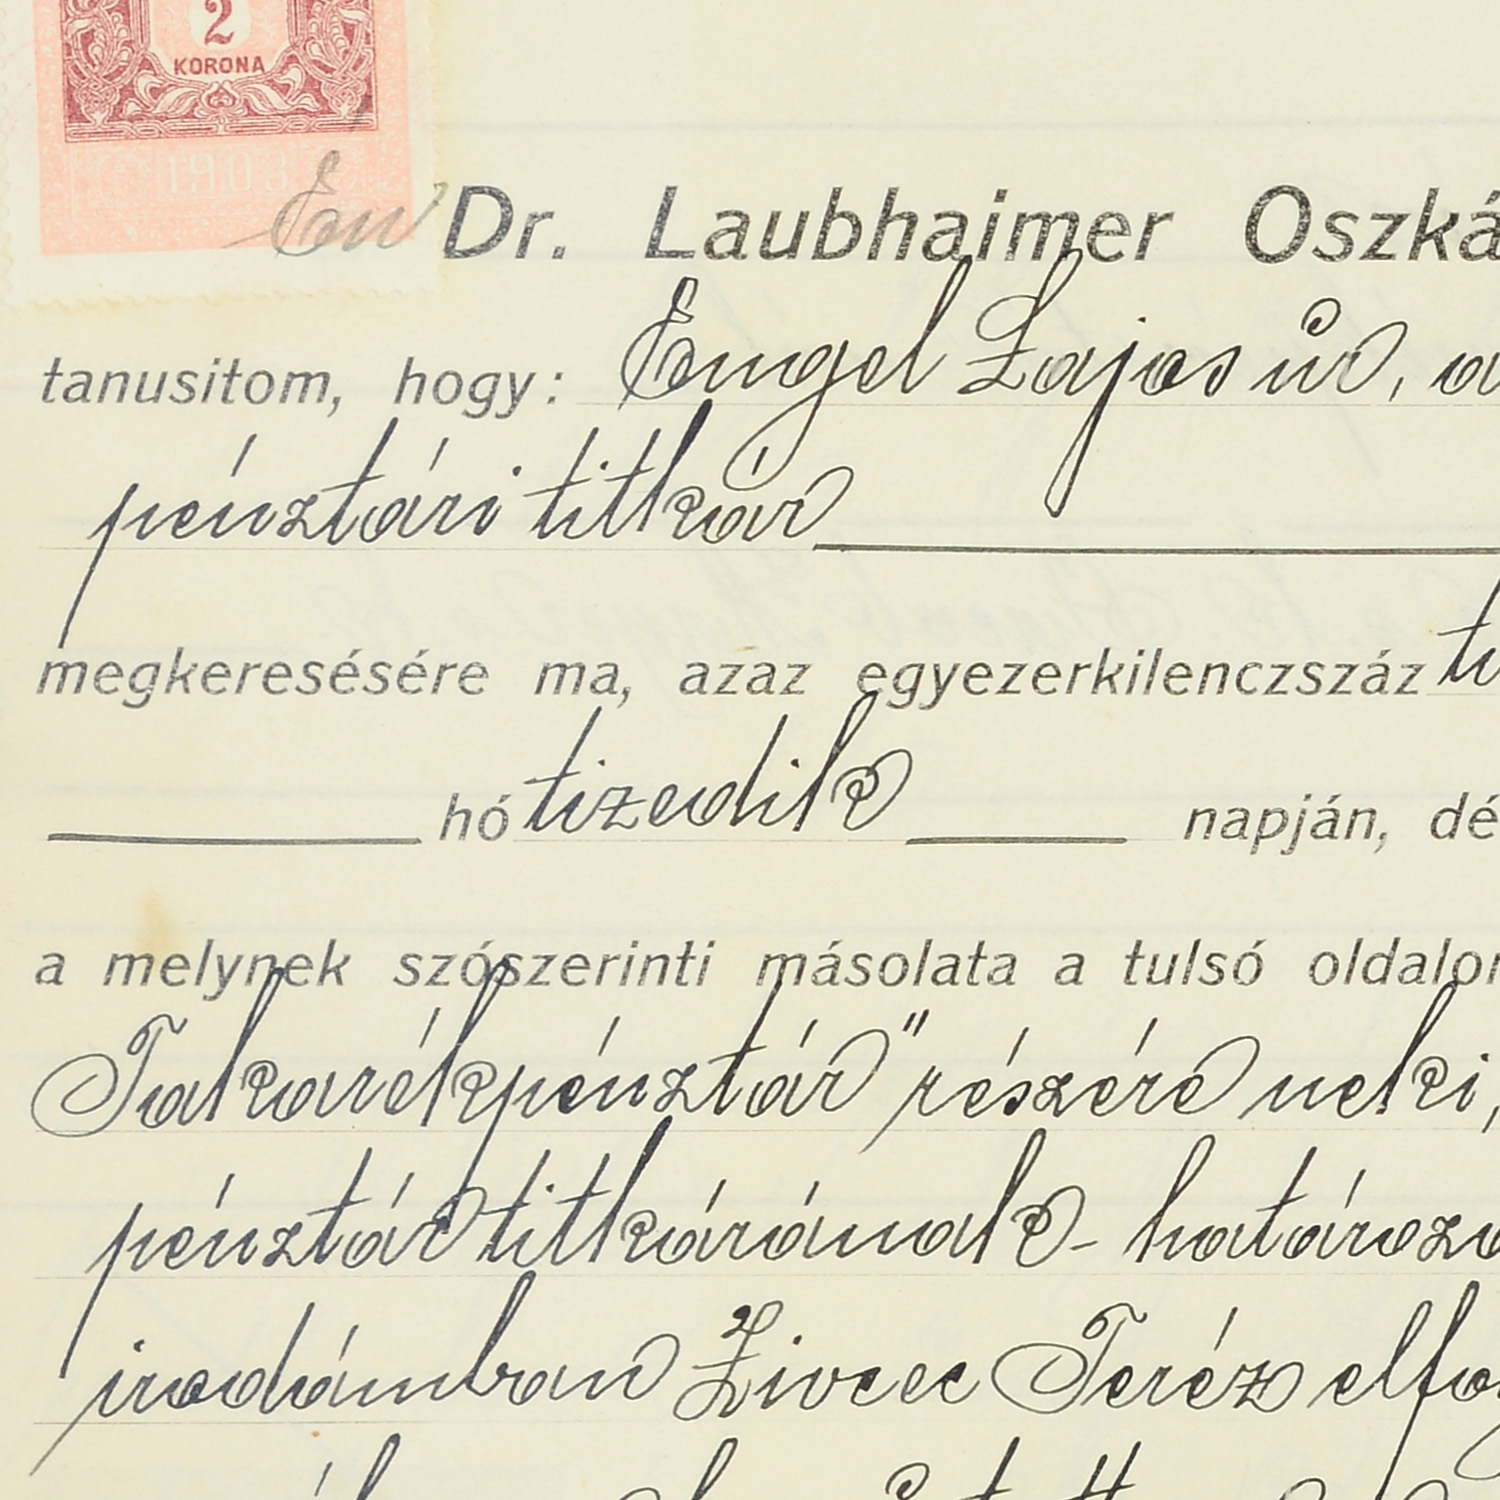 2
KORONA
1903
Én Dr. Laubhaimer Oszká
tanusitom, hogy: Engel Lajos úr, a
pénztári titkár
megkeresésére ma, azaz egyezerkilenczszáz ti
hó tizedik napján, dé
a melynek szószerinti másolata a tulsó oldalon
Takarékpénztár" részére neki,
pénztár titkárának - határoza
irodámban Zivcec Teréz elfog